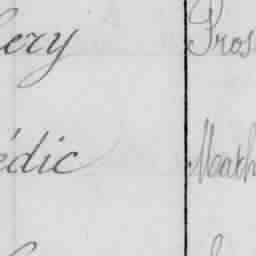 ery Pros
édic Math